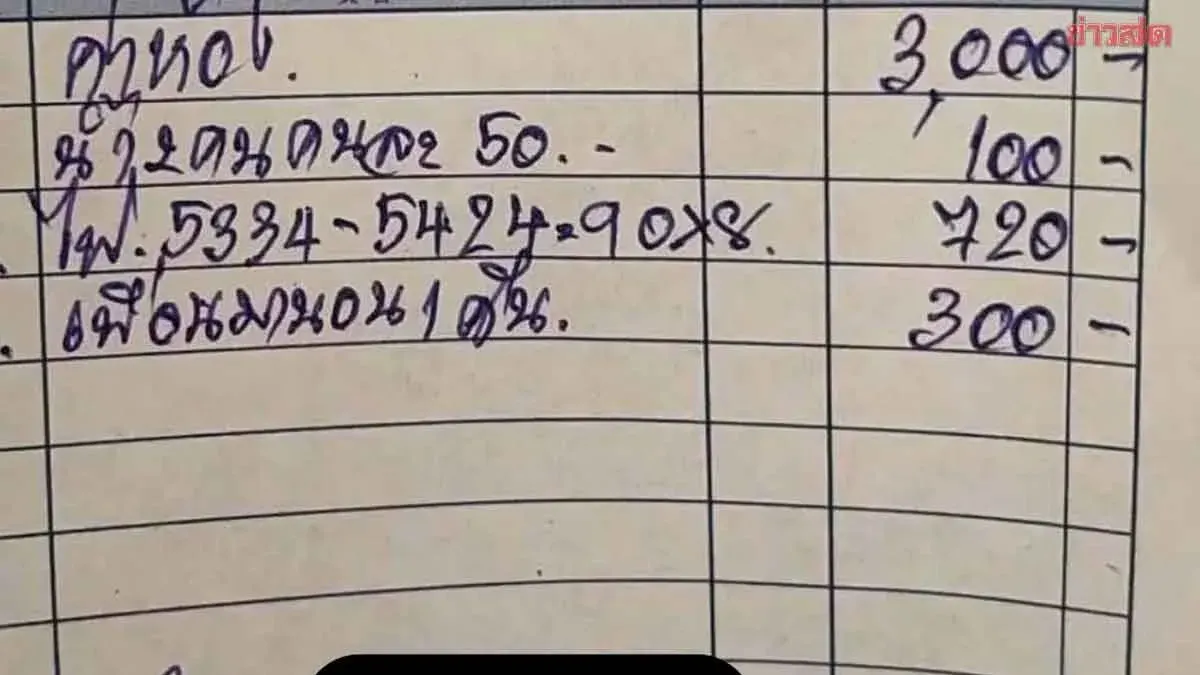 ข่าวสด
ค่าห้อง. 3,000 -
น้ำ 2 คน คนละ 50.- 100 -
ไฟ. 5334-5424=90x8. 720 -
เพื่อนมานอน 1 คืน. 300 -